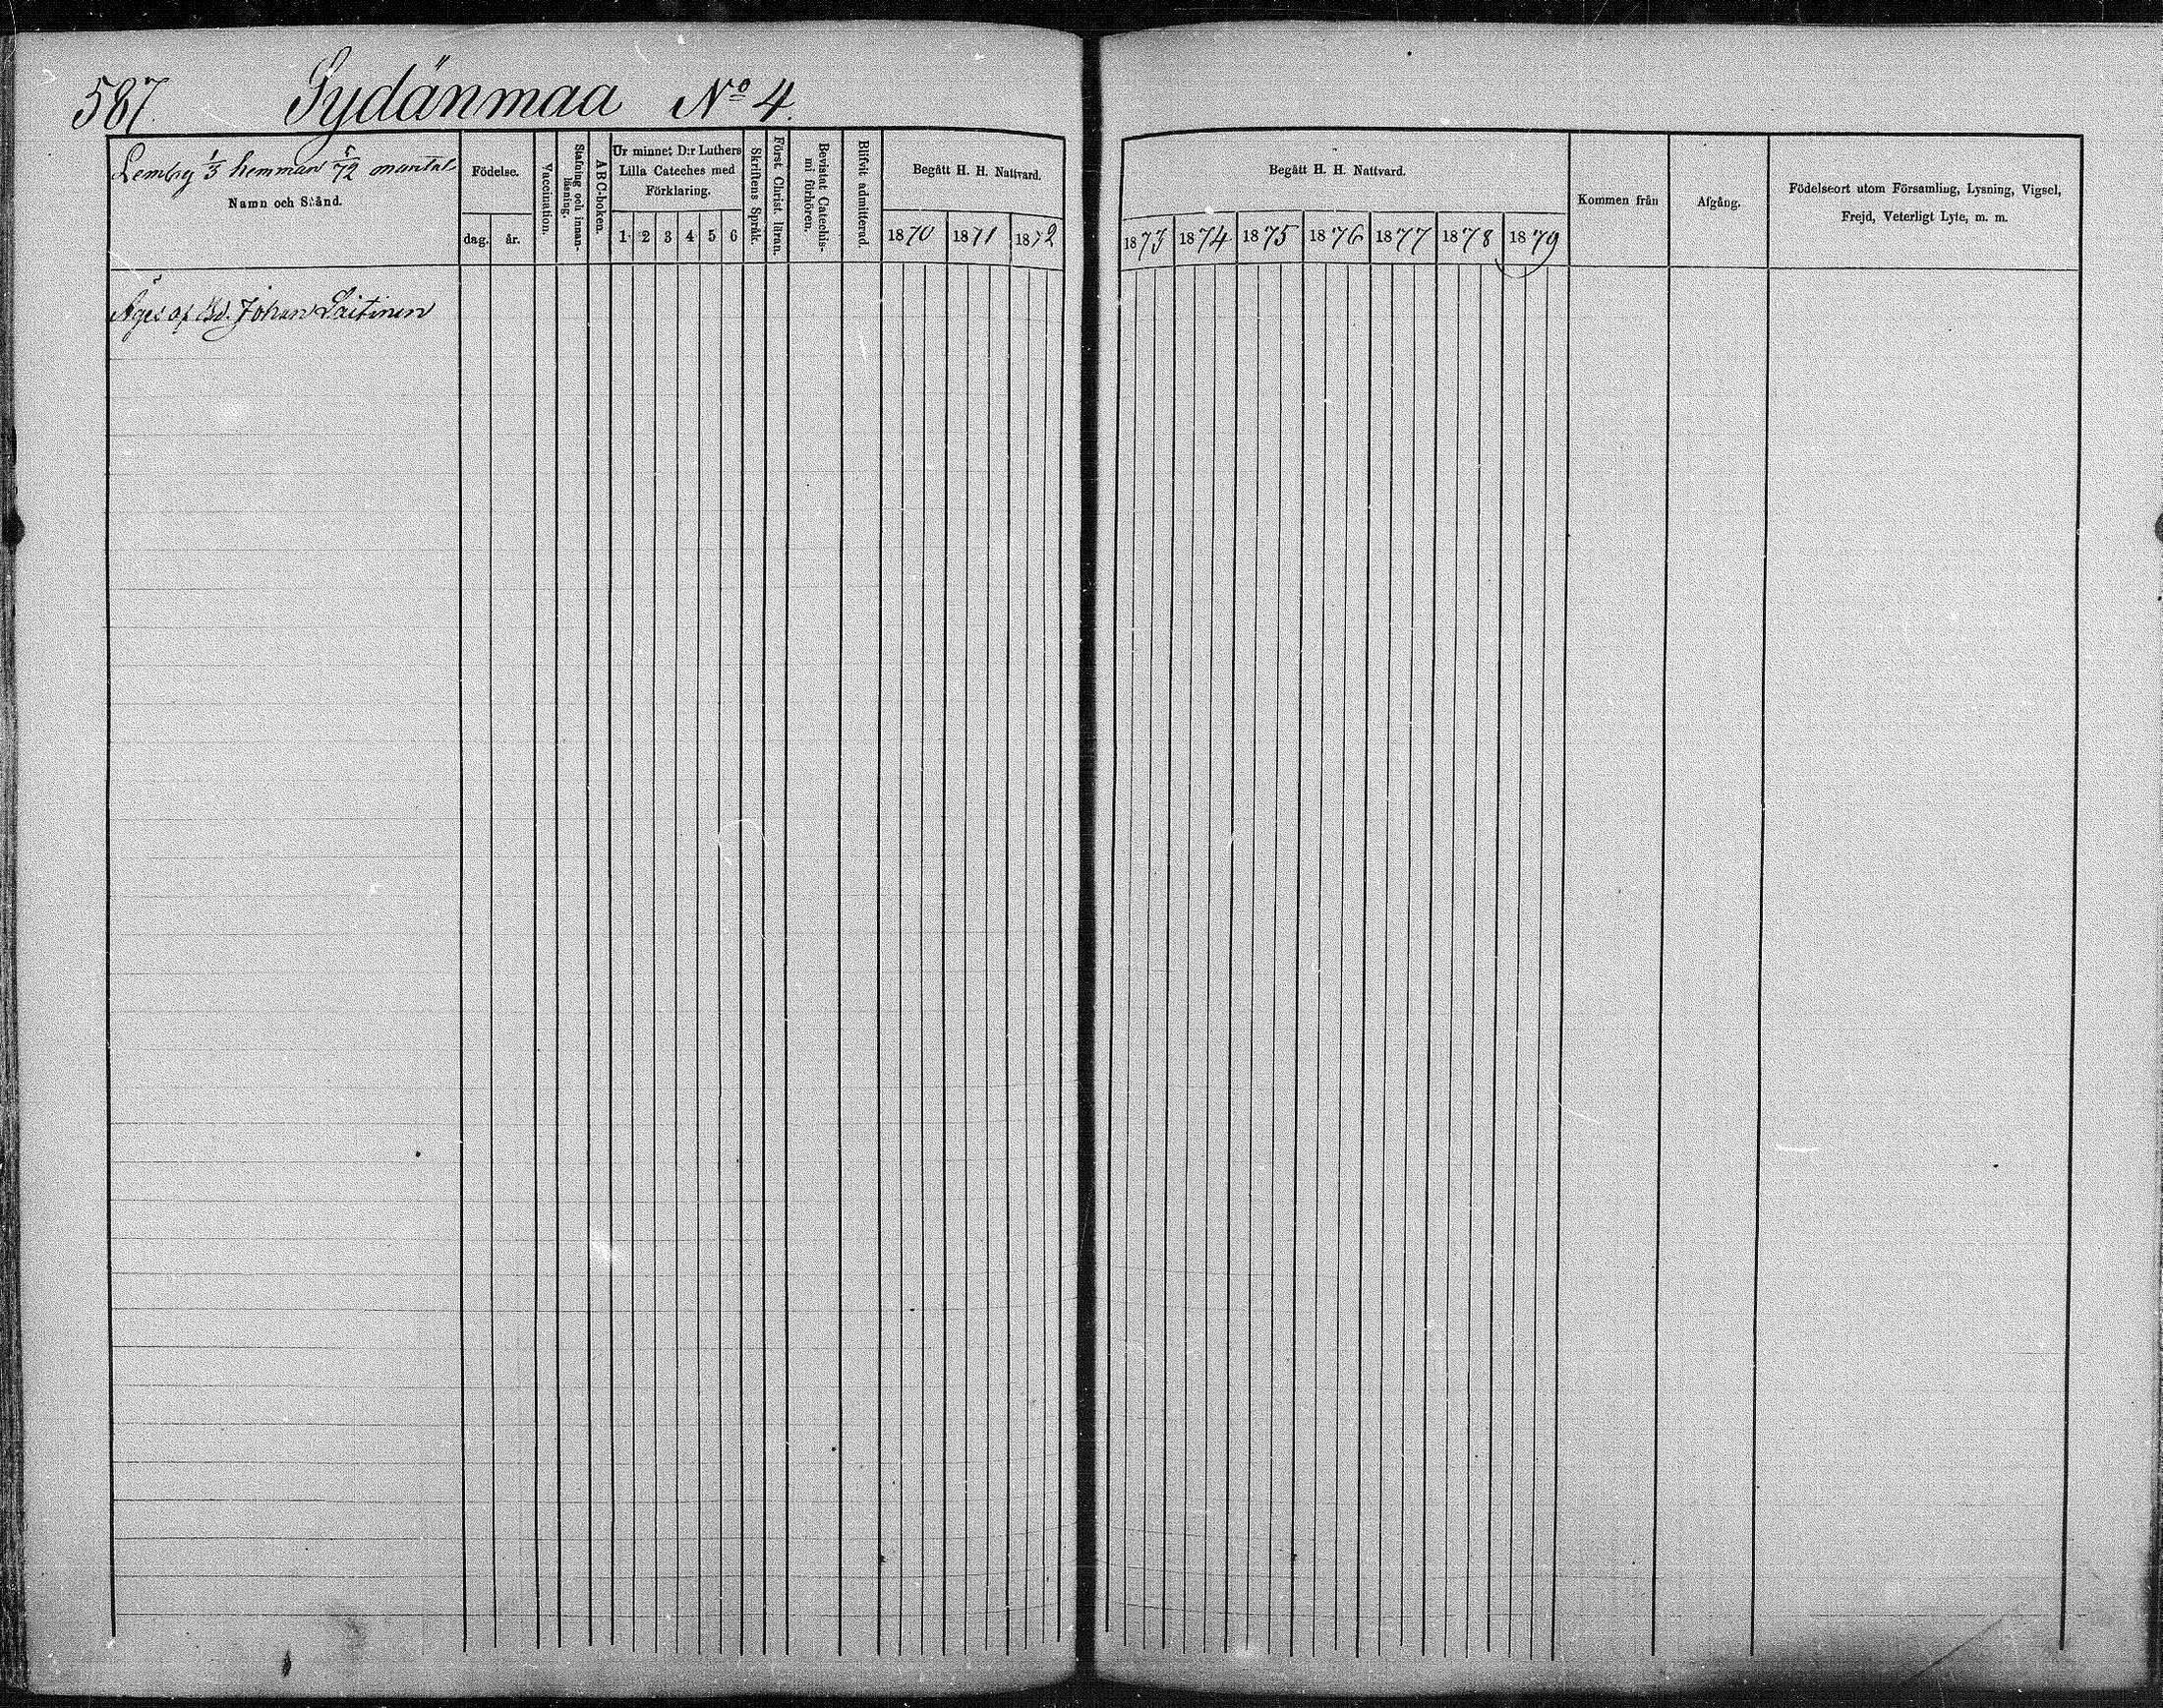 587. Sydänmaa No 4.
1/3 hemman 5/72 mantal
Namn och Stånd.
Födelse.
dag. år.
Vaccination.
Stafning och innan-
läsning.
ABC-boken.
Ur minnet D:r Luthers
Lilla Cateches med
Förklaring.
1 2 3 4 5 6
Skriftens Språk.
Först. Christ. läran.
Bevistat Catechis-
mi förhören.
Blifvit admitterad
Begått H. H. Nattvard.
1870 1871 1872
Begått H. H. Nattvard.
1873 1874 1875 1876 1877 1878 1879
Kommen från
Afgång.
Födelseort utom Församling, Lysning, Vigsel,
Frejd, Veterligt Lyte, m. m.
Äges af Bd. Johan Laitinen